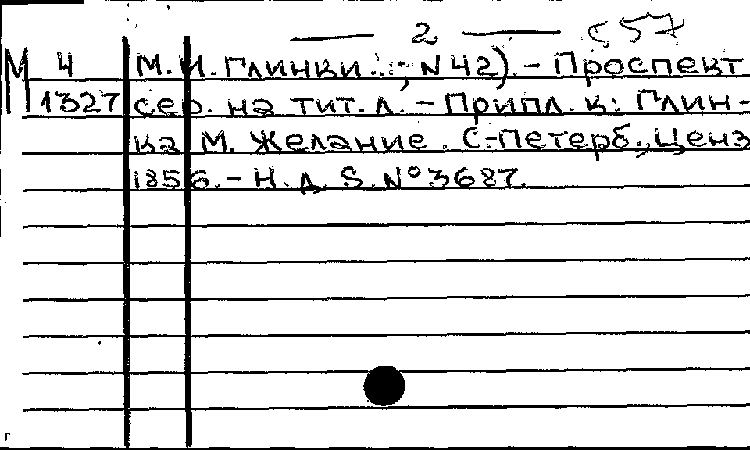 — 2 — 557
М 4 М. И. Глинки...; N 42). – Проспект
1327 сер. на тит. л. – Припл. к: Глин-
ка М. Желание. С.-Петерб., Ценз
1856. – Н. д. S. № 3687.